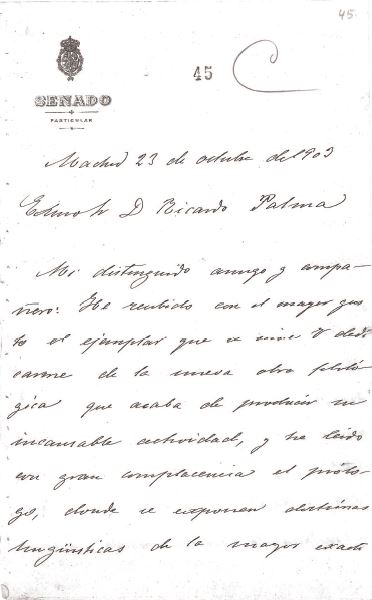 45.
45
SENADO
PARTICULAR
Madrid 23 de octubre de 1903
Excmo Sr D Ricardo Palma
Mi distinguido amigo y compa-
ñero: He recibido con el mayor gus
to el ejemplar que se sirve V dedi
carme de la nueva obra filoló
gica que acaba de producir su
incansable actividad, y he leido
con gran complacencia el prólo-
go, donde se exponen doctrinas
lingüísticas de la mayor exacti